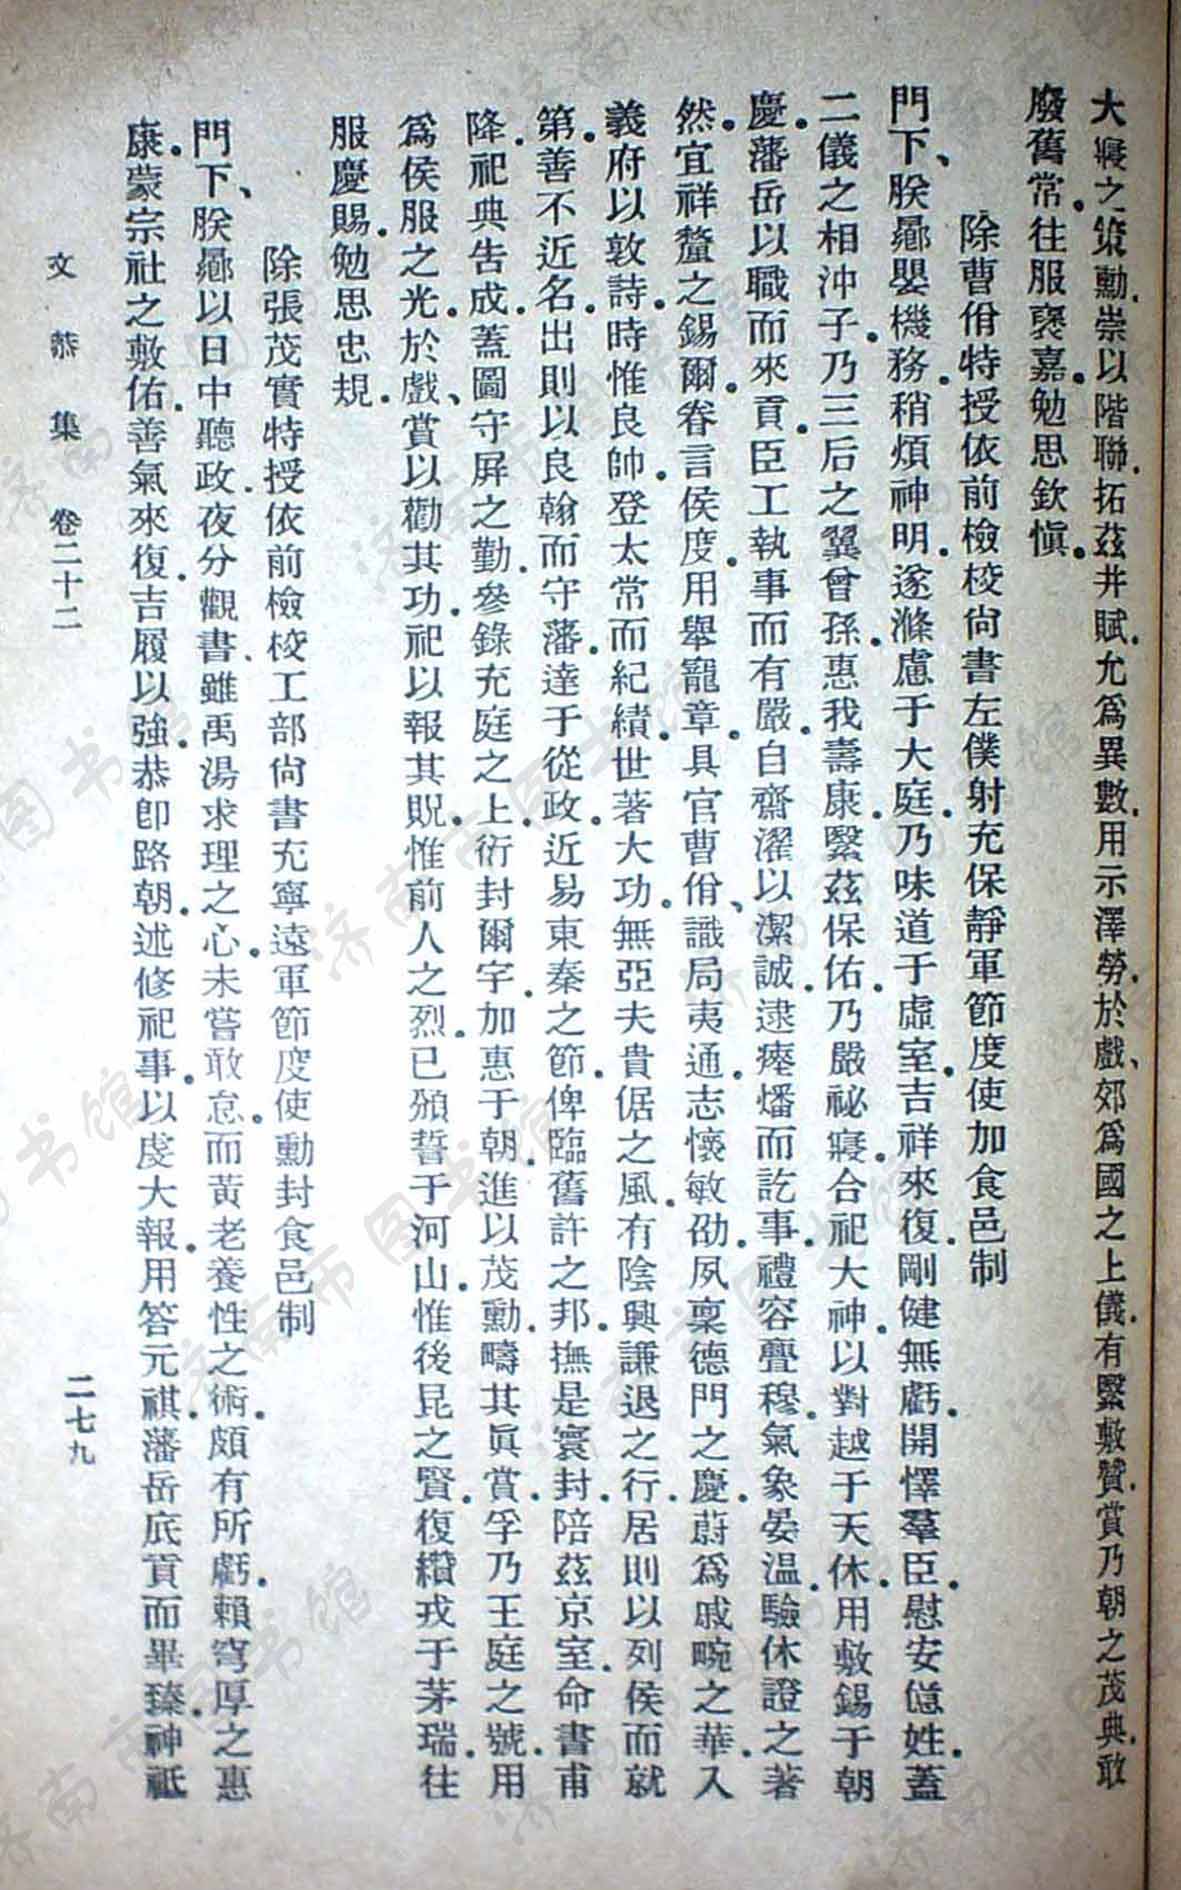 大寢之策勳崇以階聯拓茲井賦允爲異數用示澤勞於戲郊爲國之上儀有緊敷贊賞乃朝之茂典敢
廢舊常往服褒嘉勉思欽愼
除曹佾特授依前檢校尙書左僕射充保靜軍節度使加食邑制
門下朕曏嬰機務稍煩神明遂滌慮于大庭乃味道于虛室吉祥來復剛健無虧開懌羣臣慰安億姓蓋
二儀之相沖子乃三后之翼曾孫惠我壽康繄茲保佑乃嚴祕寢合祀大神以對越于天休用敷錫于朝
慶藩岳以職而來貢臣工執事而有嚴自齋濯以潔誠逮瘞燔而訖事禮容亹穆氣象晏溫驗休證之著
然宜祥釐之錫爾眷言侯度用舉寵章具官曹佾識局夷通志懷敏劭夙稟德門之慶蔚爲戚畹之華入
義府以敦詩時惟良帥登太常而紀績世著大功無亞夫貴倨之風有陰興謙退之行居則以列侯而就
第善不近名出則以良翰而守藩達于從政近易東秦之節俾臨舊許之邦撫是寰封陪茲京室命書甫
降祀典告成蓋圖守屏之勤參錄充庭之上衍封爾宇加惠于朝進以茂勳疇其眞賞孚乃王庭之號用
爲侯服之光於戲賞以勸其功祀以報其貺惟前人之烈已頒誓于河山惟後昆之賢復纘戎于茅瑞往
服慶賜勉思忠規
除張茂實特授依前檢校工部尙書充寧遠軍節度使勳封食邑制
門下朕曏以日中聽政夜分觀書雖禹湯求理之心未嘗敢怠而黃老養性之術頗有所虧賴穹厚之惠
康蒙宗社之敷佑善氣來復吉履以強恭卽路朝述修祀事以虔大報用答元祺藩岳底貢而畢臻神祇
文恭集 卷二十二 二七九